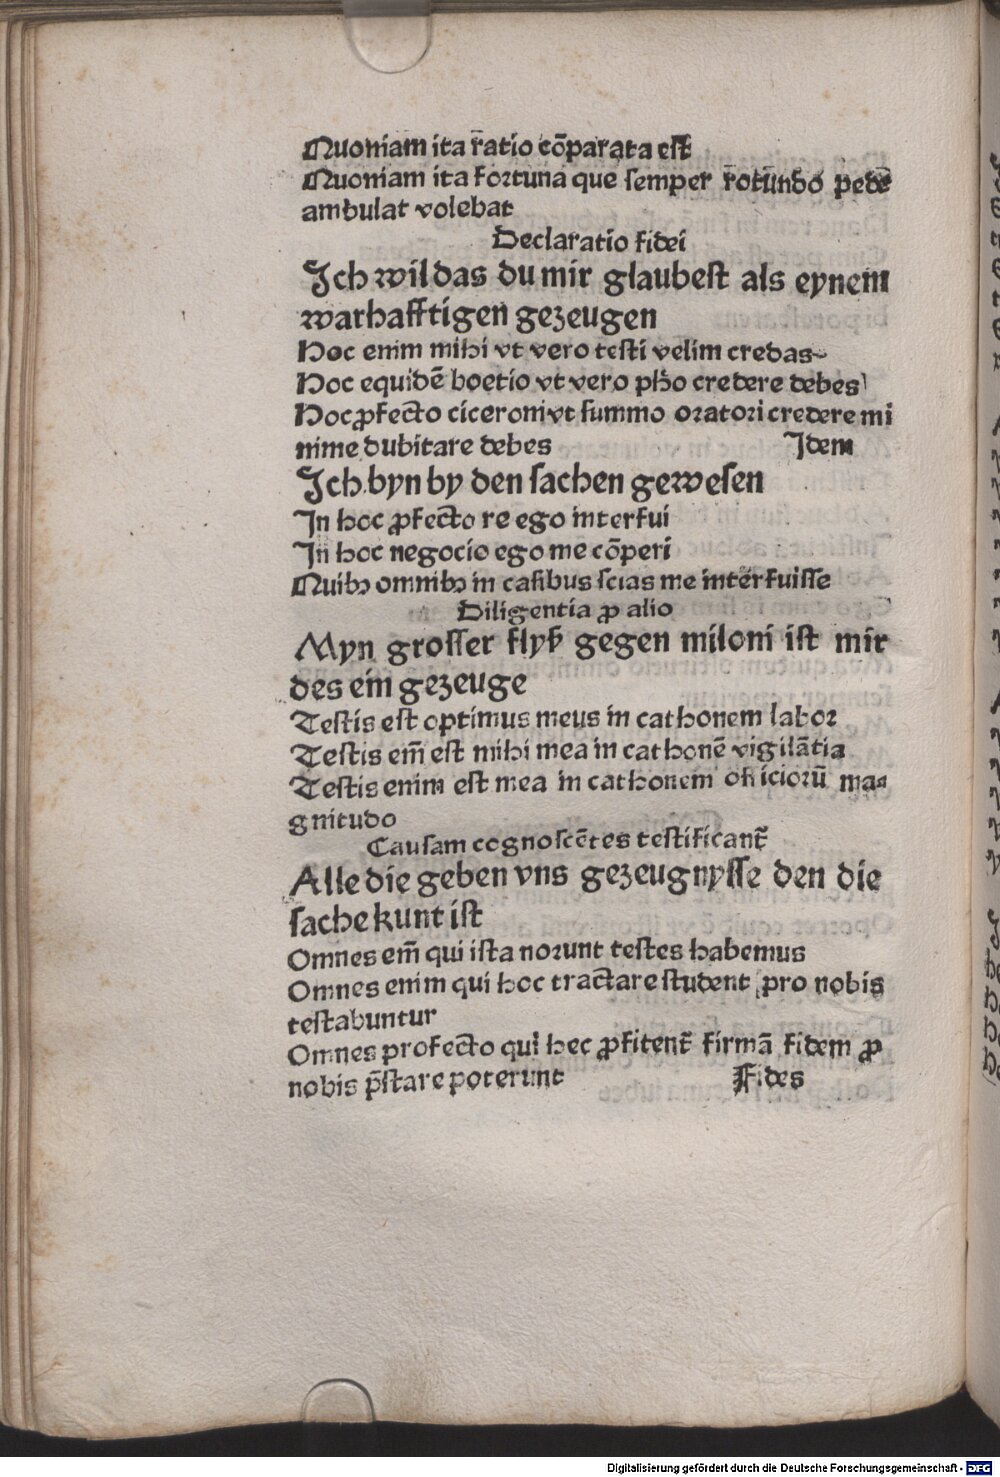 Quoniam ita ratio cōparata est
Quoniam ita fortuna que semper rotūndo pede
ambulat volebat
Declaratio fidei
Ich wil das du mir glaubest als eynem
warhafftigen gezeugen
Hoc enim mihi vt vero testi velim credas
Hoc equidē boetio vt vero pħo credere debes
Hoc ꝓfecto ciceroni vt summo oratori credere mi
nime dubitare debes Idem
Ich byn by den sachen gewesen
In hoc ꝓfecto re ego interfui
In hoc negocio ego me cōperi
Quibꝫ omnibꝫ in casibus scias me interfuisse
Diligentia ꝓ alio
Myn grosser flyß gegen miloni ist mir
des ein gezeuge
Testis est optimus meus in cathonem labor
Testis em̄ est mihi mea in cathonē vigilātia
Testis enim est mea in cathonem officiorū ma⸗
gnitudo
Causam cognoscētes testificant᷑
Alle die geben vns gezeugnysse den die
sache kunt ist
Omnes em̄ qui ista norunt testes habemus
Omnes enim qui hoc tractare student pro nobis
testabuntur
Omnes profecto qui hec ꝓfitent᷑ firmā fidem ꝓ
nobis p̄stare poterunt Fides
Digitalisierung gefördert durch die Deutsche Forschungsgemeinschaft - DFG